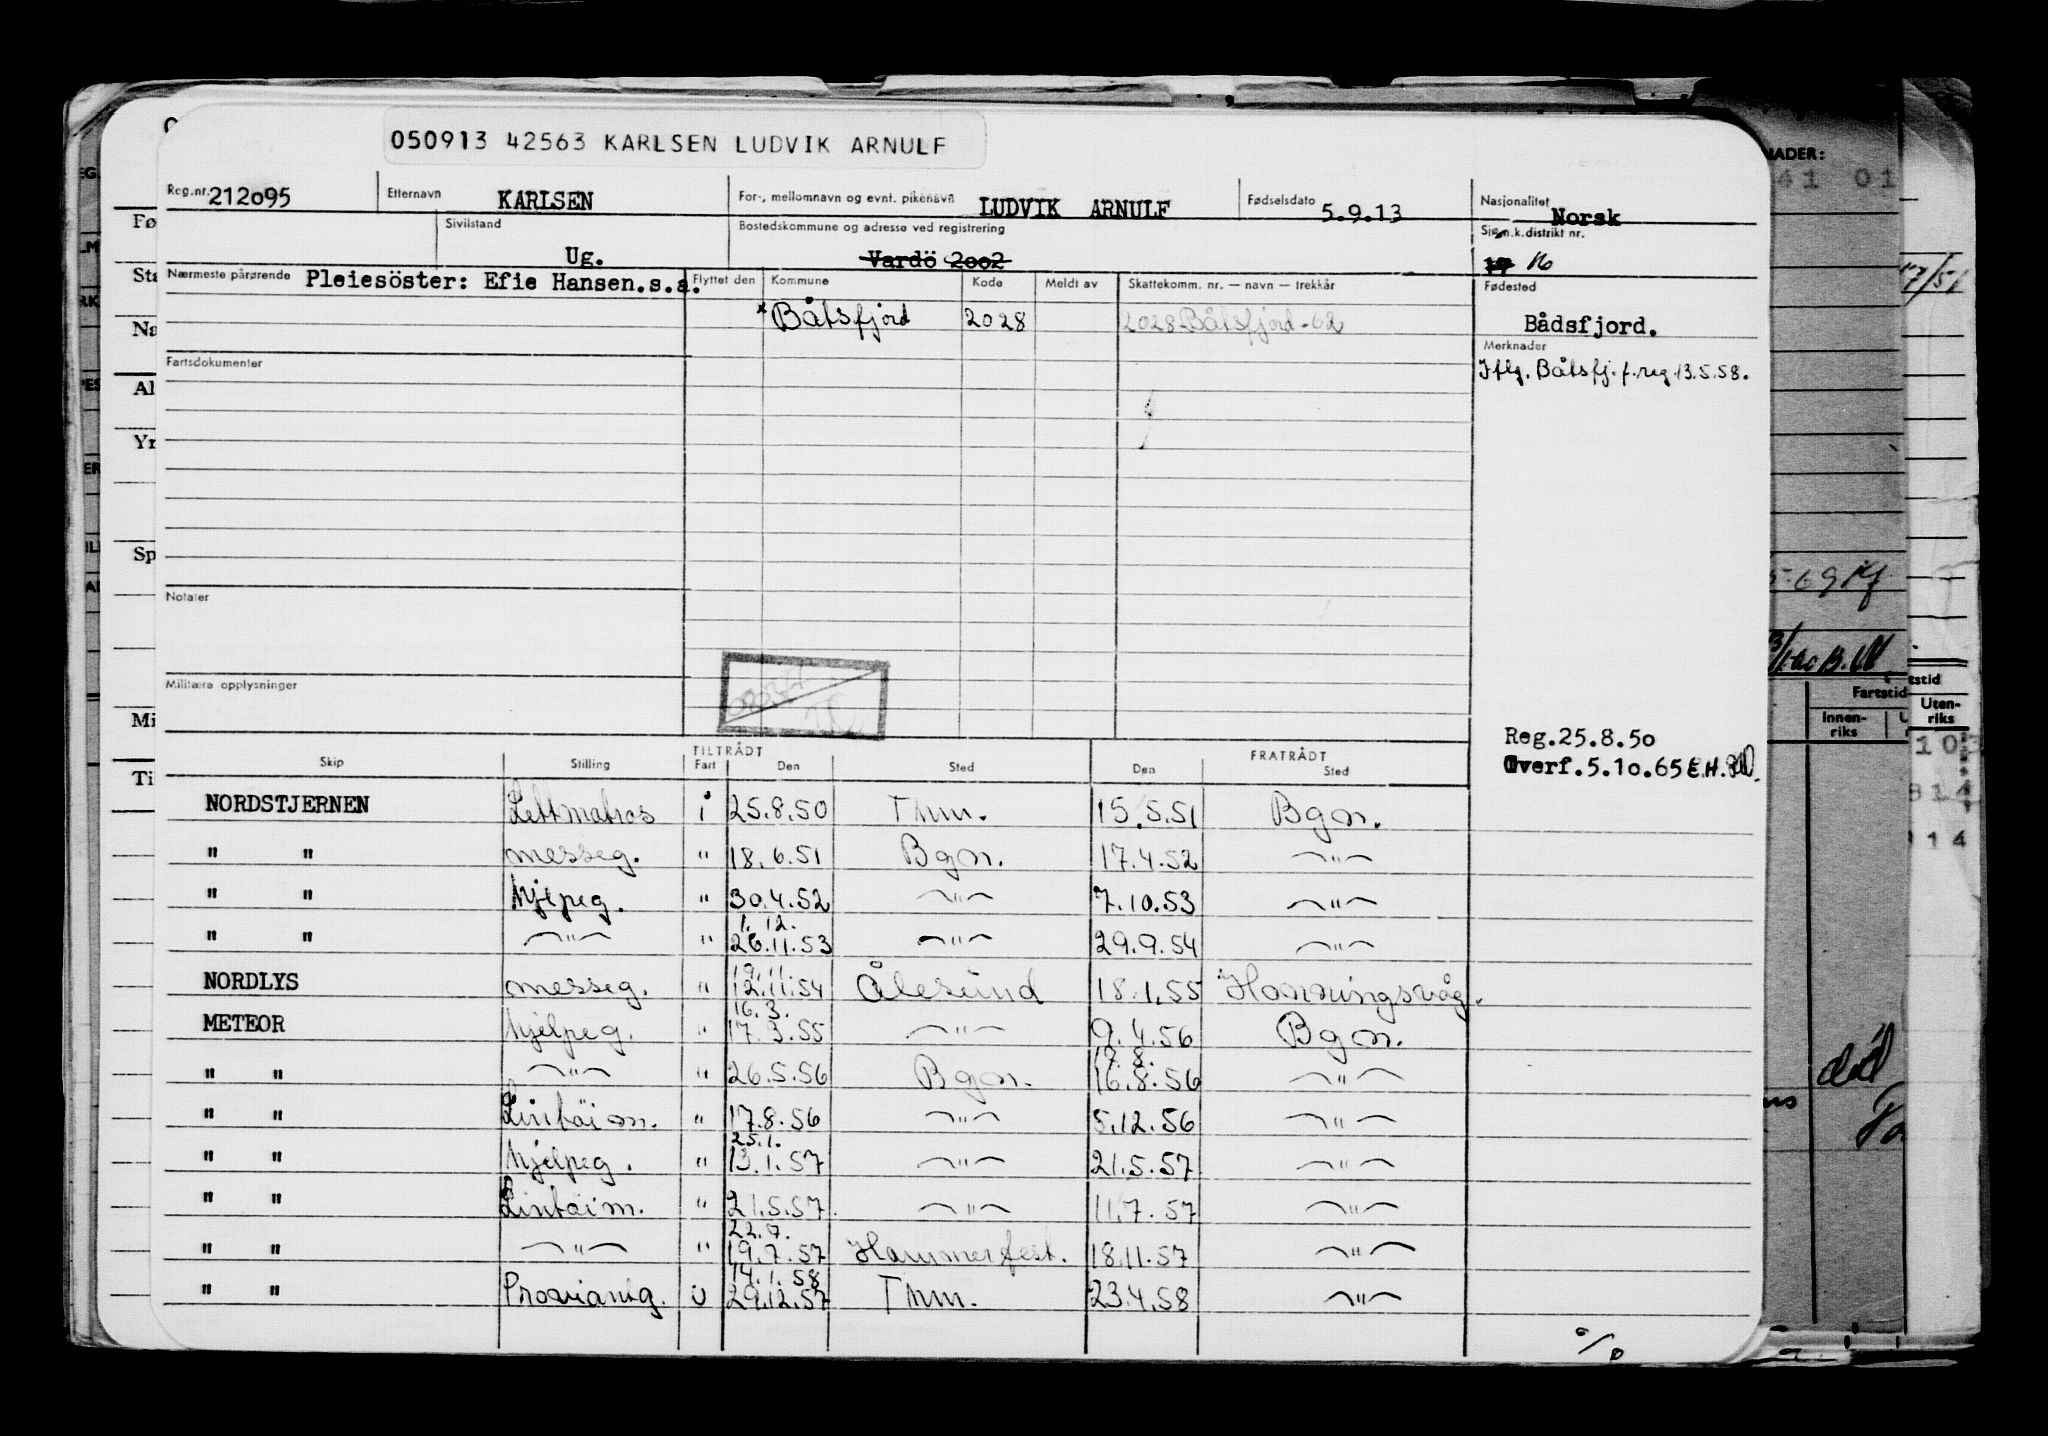 050913 42563 KARLSEN LUDVIK ARNULF
Reg.nr. 212o95 Etternavn KARLSEN For-, mellomnavn og evnt. pikenavn LUDVIK ARNULF Fødselsdato 5.9.13 Nasjonalitet Norsk
Sivilstand Ug. Bostedskommune og adresse ved registrering Vardö 2oo2 Sjøm.k.distrikt nr. 16
Nærmeste pårørende Pleiesöster: Efie Hansen.s.a. Flyttet den Kommune Kode Meldt av Skattekomm. nr. — navn — trekkår Fødested
* Båtsfjord 2028 2028-Båtsfjord-62 Bådsfjord.
Fartsdokumenter Merknader
Iflg. Båtsfj. f.reg 13.5.58.
Notater
Militære opplysninger
Reg.25.8.5o
Overf.5.1o.65 E.H.
TILTRÅDT FRATRÅDT
Skip Stilling Fart Den Sted Den Sted
NORDSTJERNEN Lettmatros i 25.8.50 Thm. 15.5.51 Bgn.
" " messeg. " 18.6.51 Bgn. 17.4.52 — " —
" " hjelpeg. " 30.4.52 — " — 7.10.53 — " —
1.12.
" " — " — " 26.11.53 — " — 29.9.54 — " —
19.11.
NORDLYS messeg. " 12.11.54 Ålesund 18.1.55 Honningsvåg.
16.3.
METEOR hjelpeg. " 17.3.55 — " — 9.4.56 Bgn.
17.8.
" " — " — " 26.5.56 Bgn. 16.8.56 — " —
" " Lintöim. " 17.8.56 — " — 5.12.56 — " —
25.1.
" " hjelpeg. " 13.1.57 — " — 21.5.57 — " —
" " Lintöim. " 21.5.57 — " — 11.7.57 — " —
22.7.
" " — " — " 19.7.57 Hammerfest. 18.11.57 — " —
14.1.58
" " Proviantg. u 29.12.57 Thm. 23.4.58 — " —
NADER:
41 01
17/51
Fartstid
Innen-
riks
Uten-
riks
10
814
14
død
Fø
Sta
Na
Al
Yr
Sp
Mi
Ti